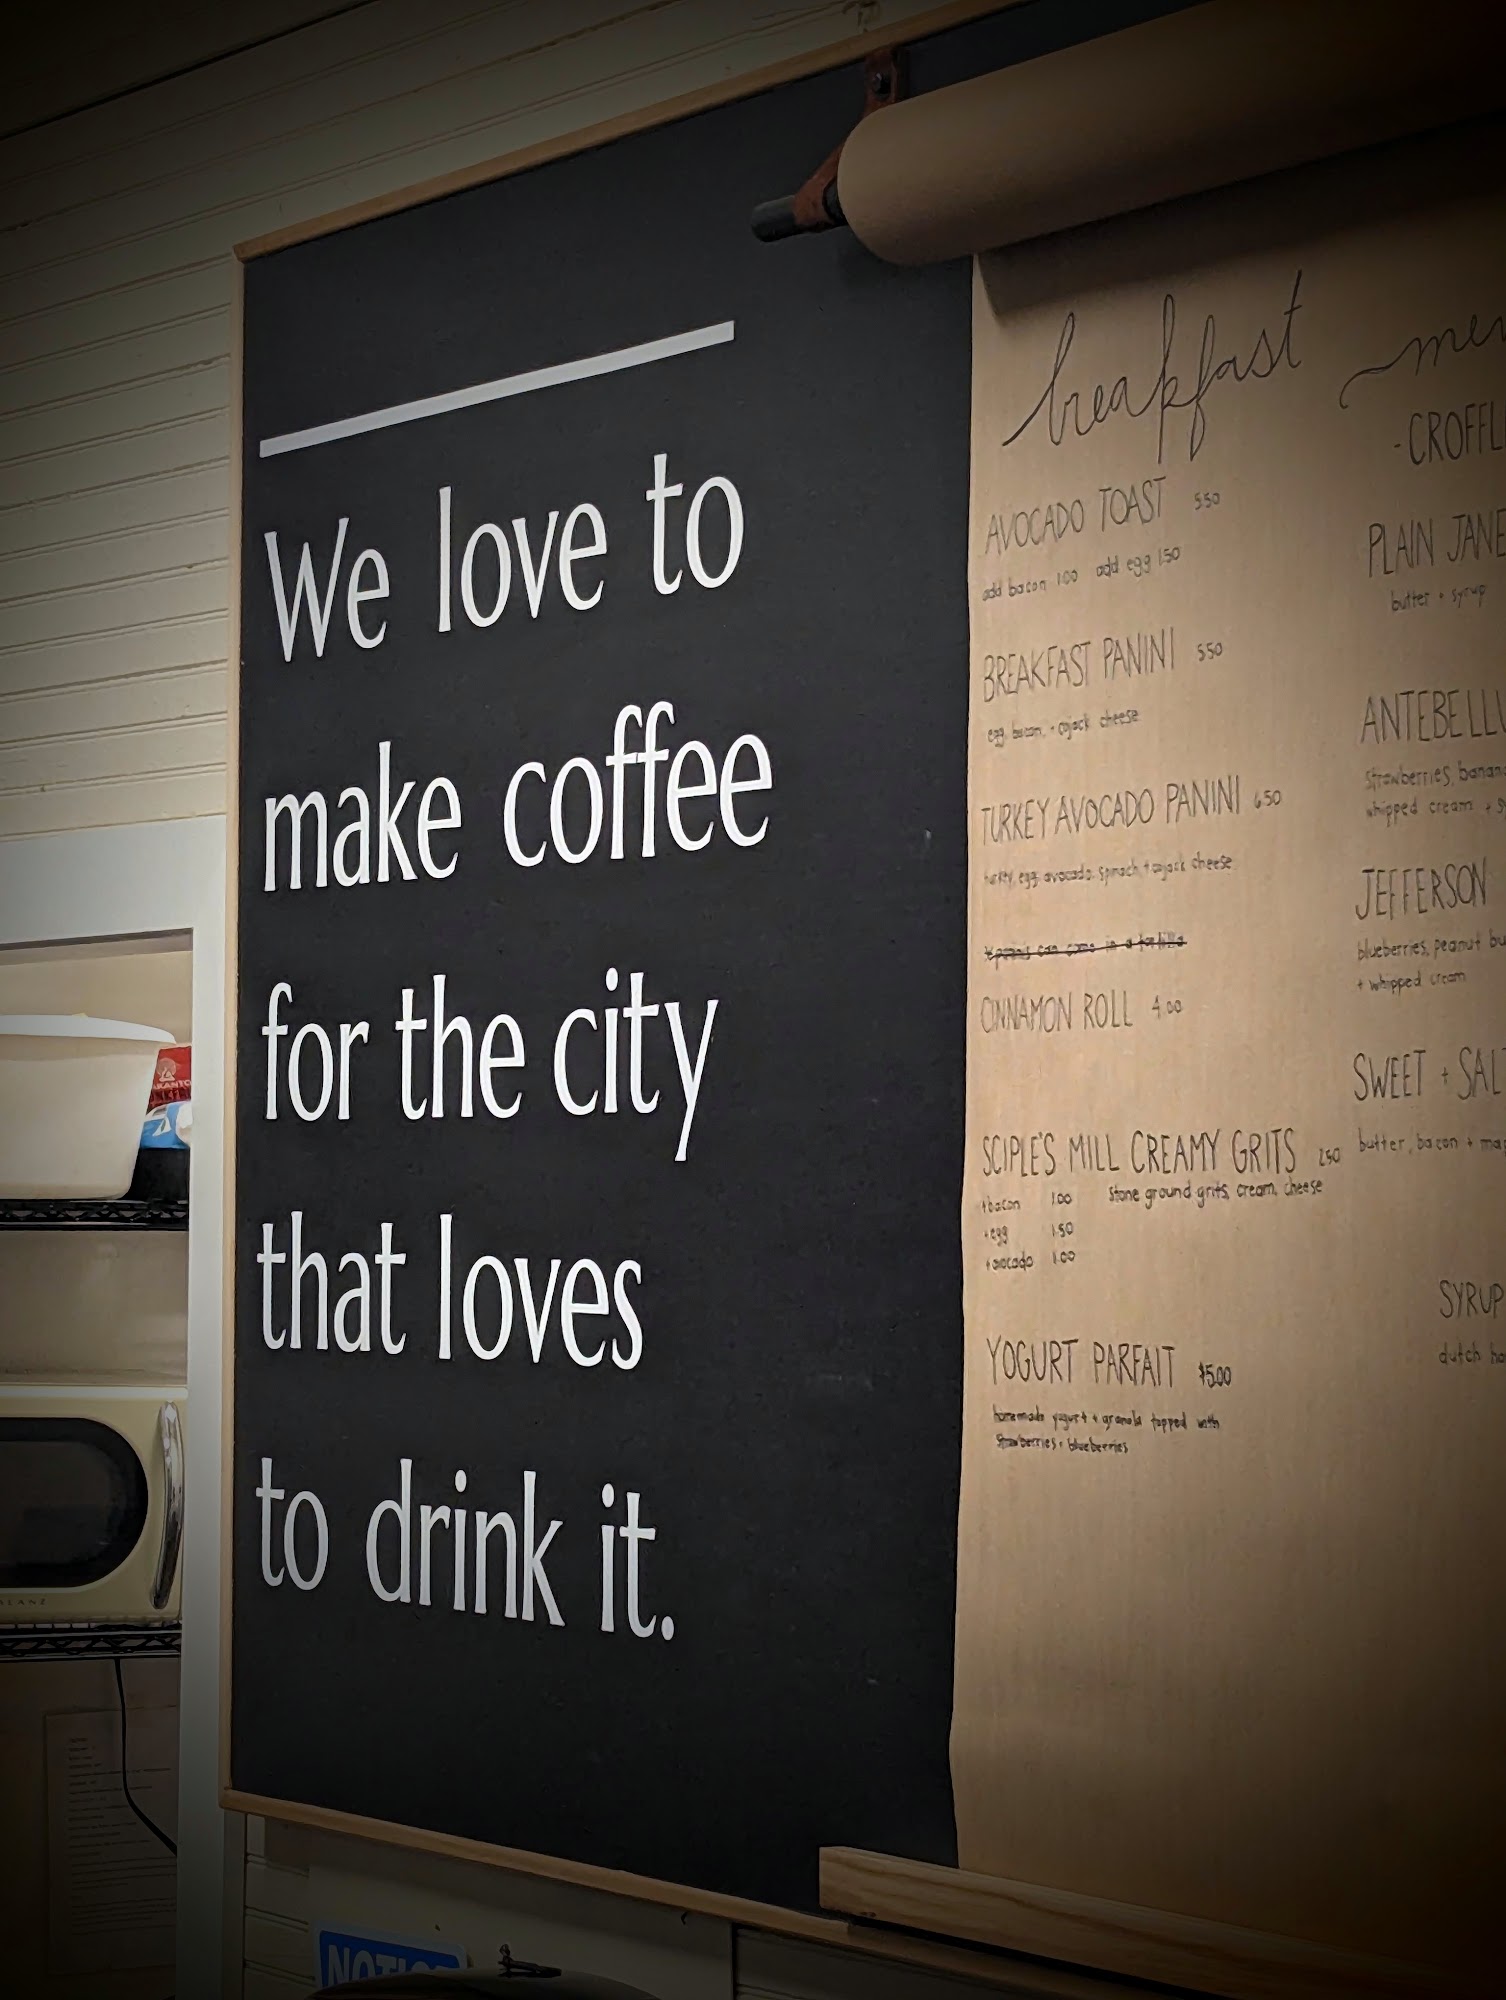 We love to
make coffee
for the city
that loves
to drink it.
breakfast
AVOCADO TOAST 5.50
add bacon 1.00 add egg 1.50
BREAKFAST PANINI 5.50
egg, bacon, + cojack cheese
TURKEY AVOCADO PANINI 6.50
turkey, egg, avocado, spinach + cojack cheese
CINNAMON ROLL 4.00
SCIPLE'S MILL CREAMY GRITS 2.50
+ bacon 1.00 stone ground grits, cream, cheese
+ egg 1.50
+ avocado 1.00
YOGURT PARFAIT $5.00
homemade yogurt + granola topped with
strawberries + blueberries
- CROFFL
PLAIN JANE
butter + syrup
ANTEBELLU
strawberries, banan
whipped cream +
JEFFERSON
blueberries, peanut bu
+ whipped cream
SWEET + SALT
butter, bacon + map
SYRUP
dutch ho
NOTIC